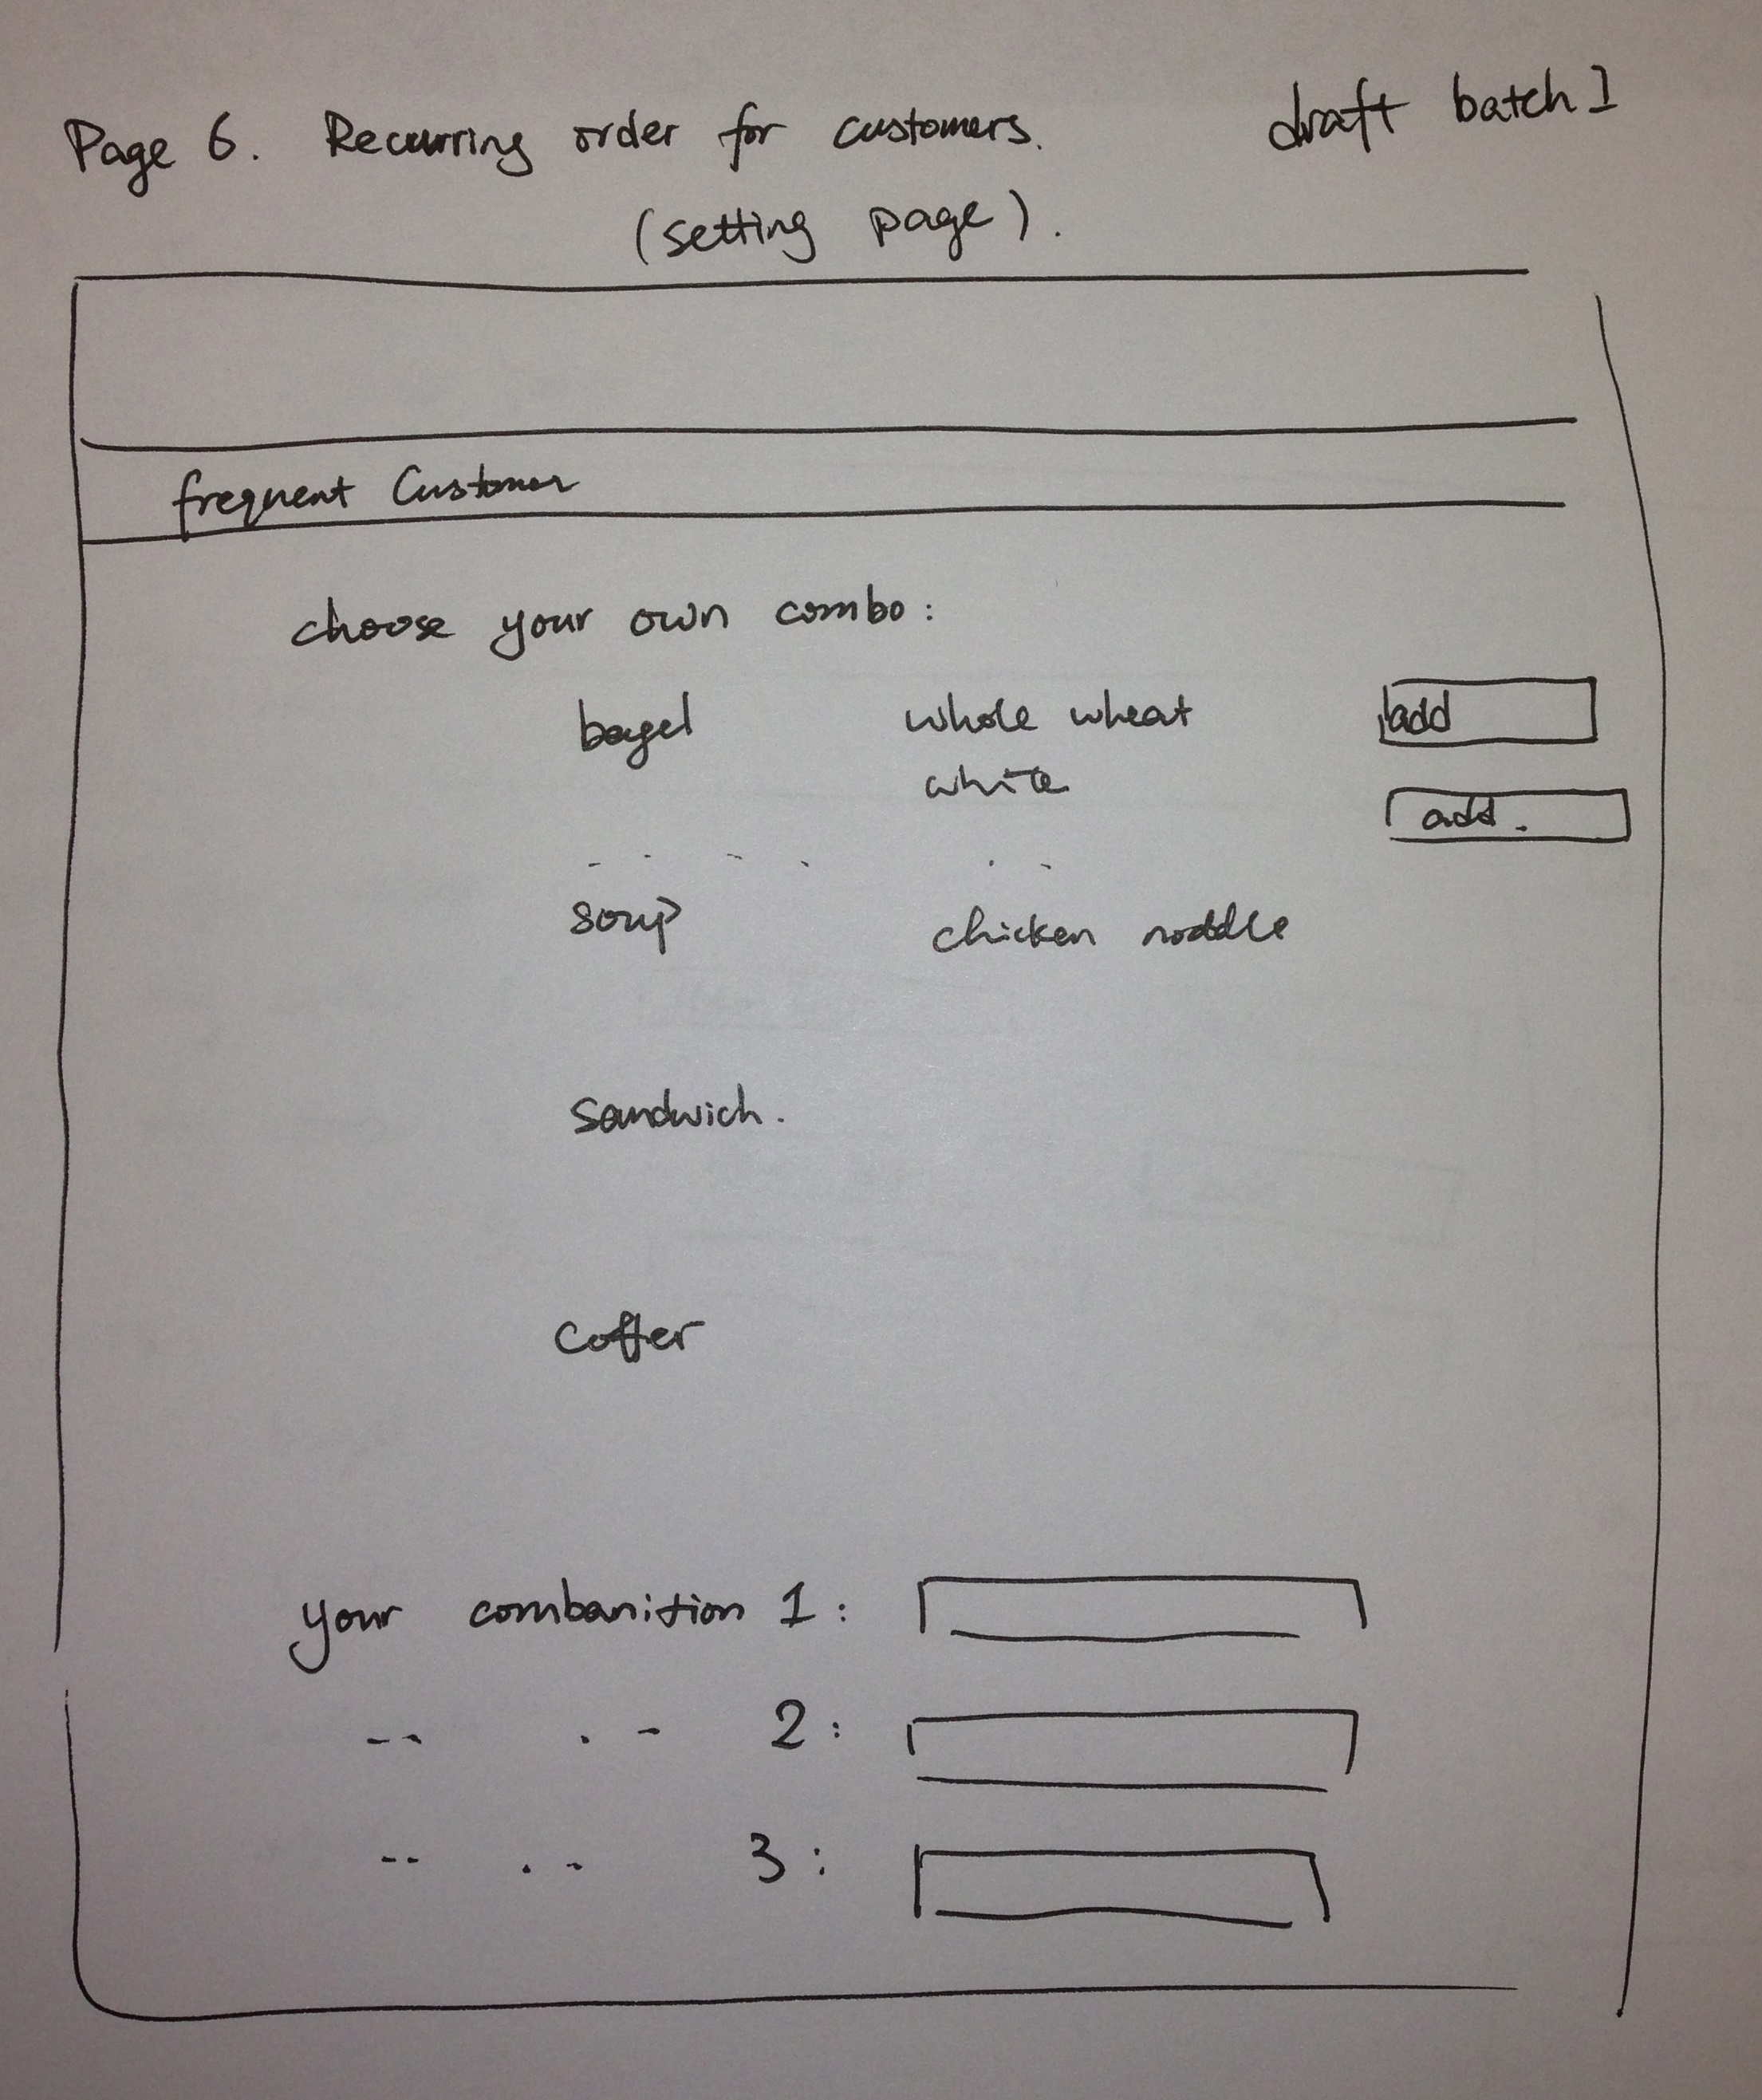 Page 6. Recurring order for customers. draft batch 1
(setting page).
frequent Customer
choose your own combo:
bagel whole wheat add
white
add.
soup chicken noddle
sandwich.
Coffer
your combanition 1:
-- . - 2:
-- . - 3: